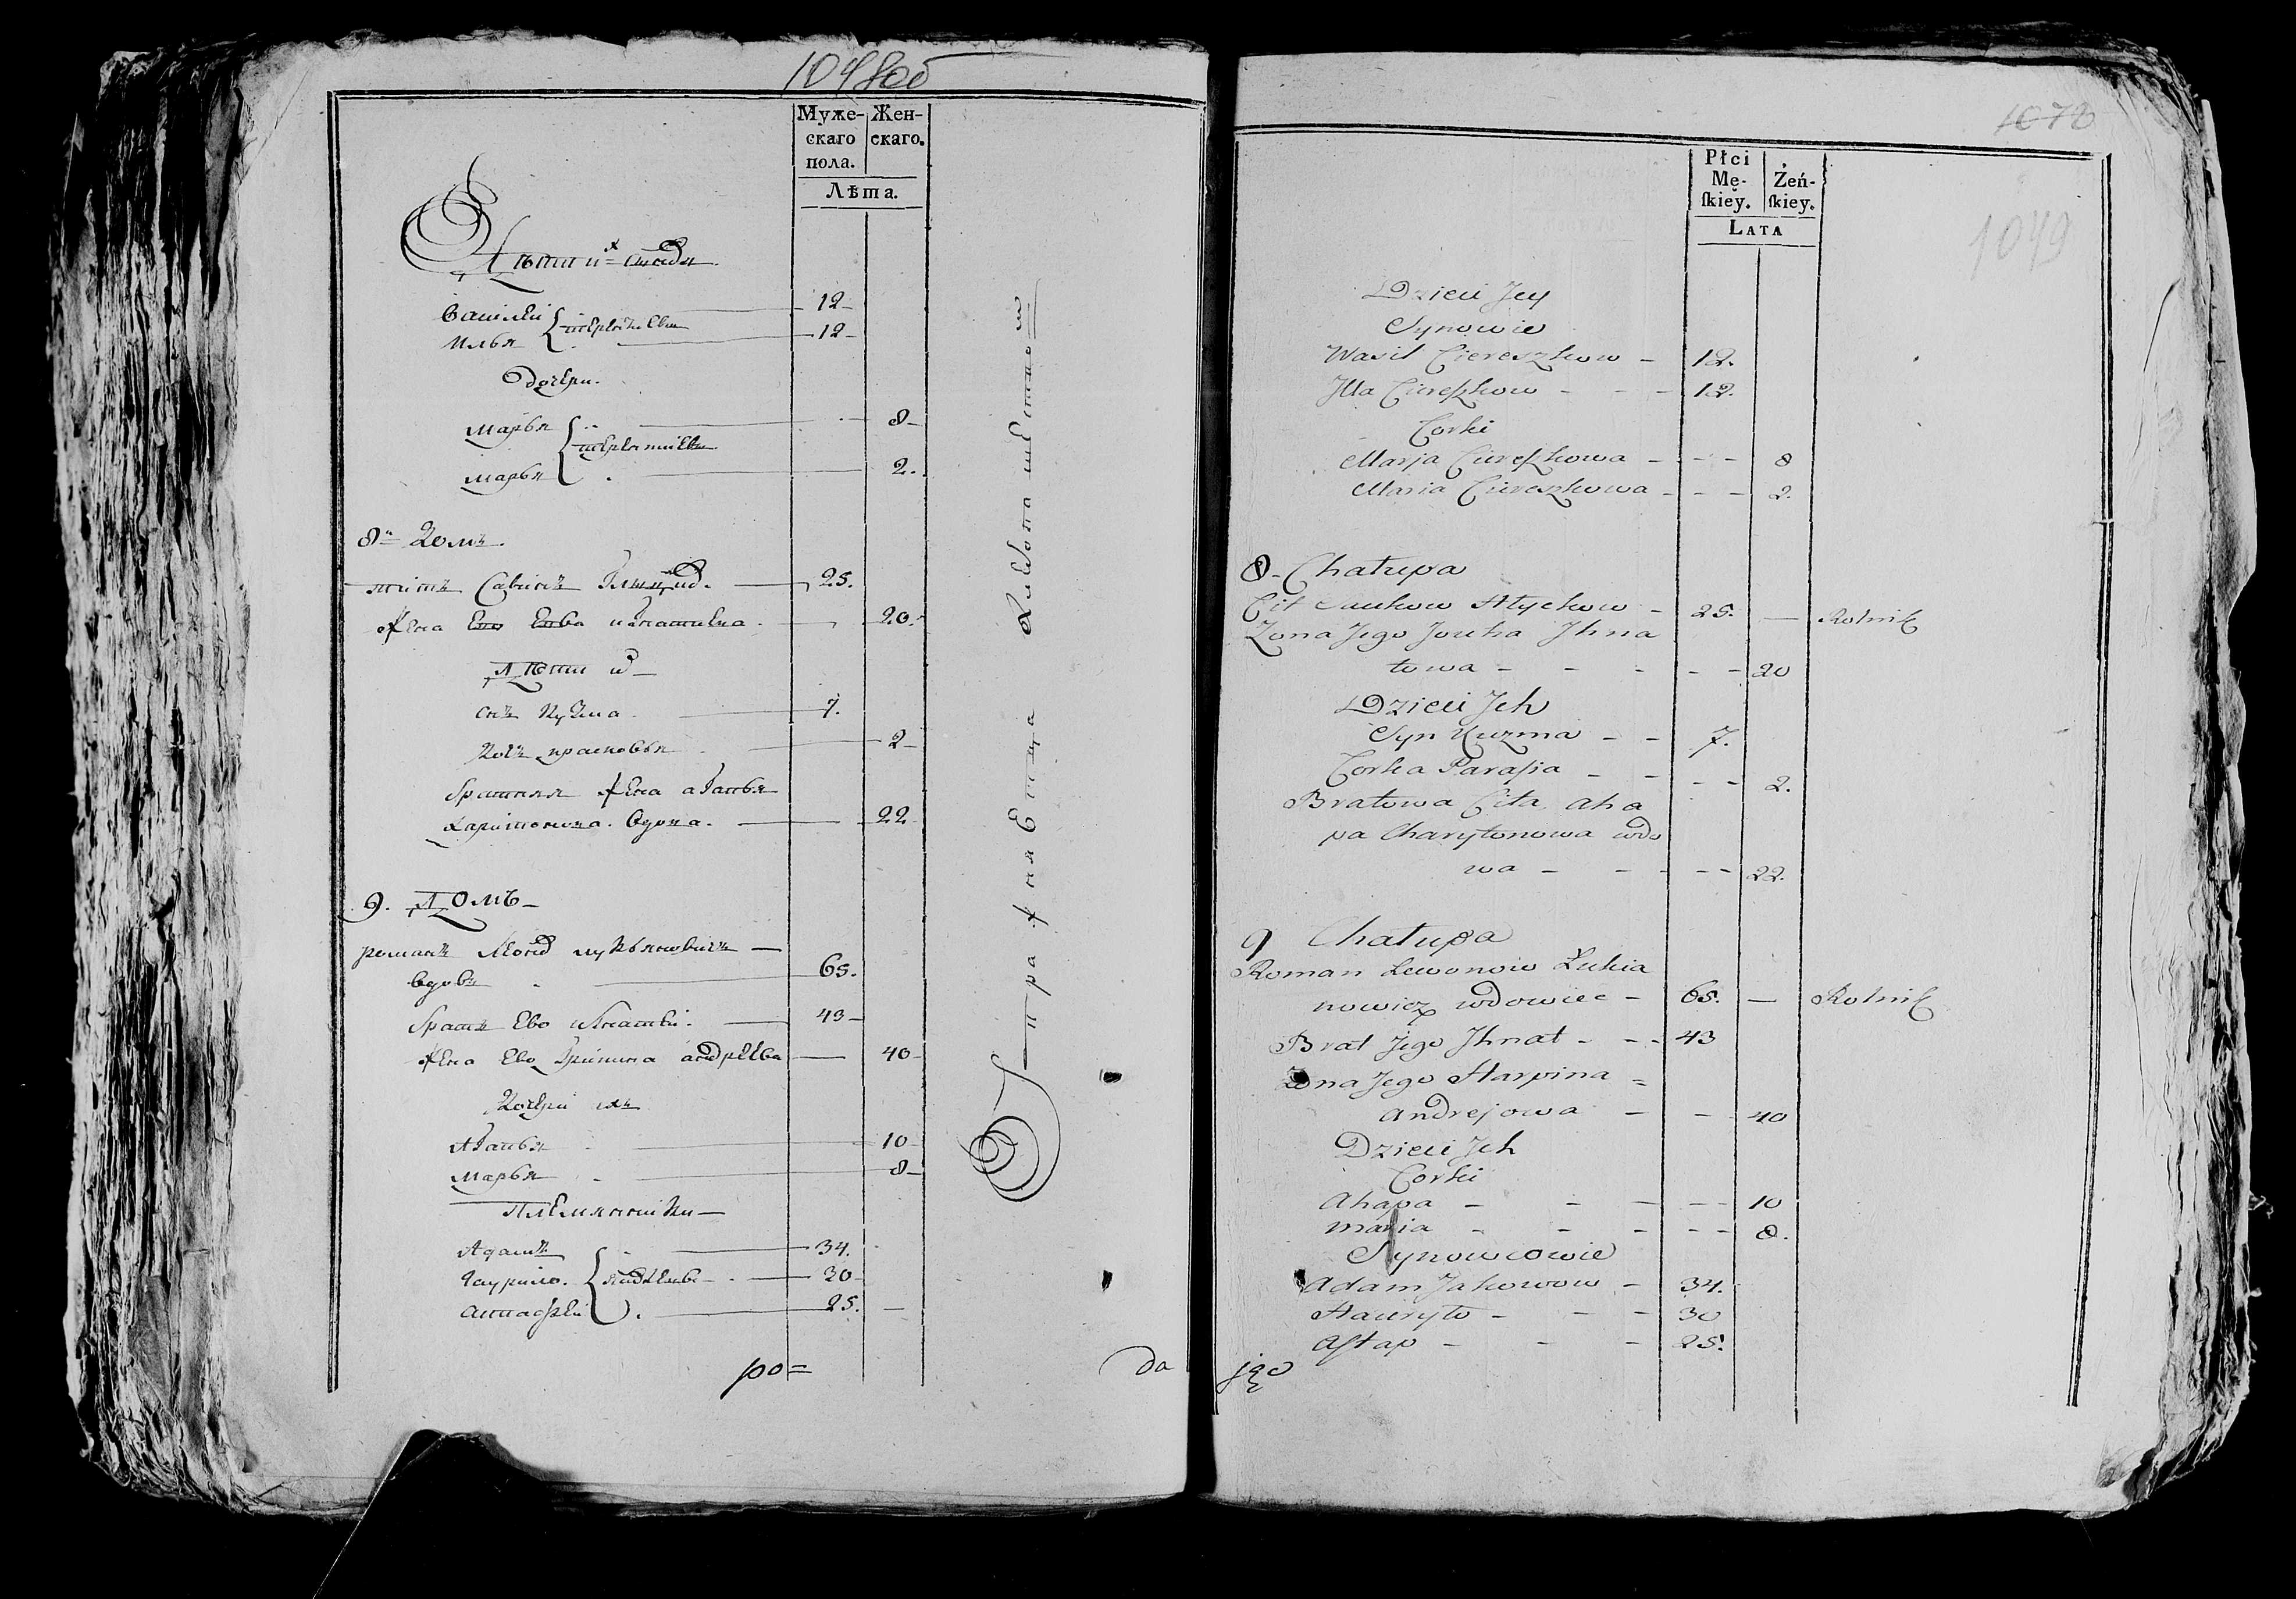 1048об
Муже-
скаго
пола.
Жен-
скаго.
Лѣта.
Дѣти ихъ
Василеи 12
Илья 12
Дочери.
Марья 8
Марья 2.
8й Домъ.
титъ Савинъ 25.
Жена Ево игнатьева 20.
Дѣти
снъ Кузма 7.
Дочь прасковья 2
братняя Жена агапья
харитонова. вдова. 22
9. Домъ
романъ Леонов лукьяновичъ
вдовъ 65.
братъ Ево игнатей. 43
Жена Ево Грипина андреева 40
Дочери ихъ
Агапья 10
Марья 8
Племянники
Адамъ 34.
Гаурило. 30
Астафей 25.
po=
da
1078
1049
Płci
Mę-
ſkiey.
Żeń-
ſkiey.
LATA
Dzieci Jey
Synowie
Wasil Ciereszkow 12.
Jlla Cireszkow 12.
Corki
Marja Cireszkowa 8
Maria Ciereszkowa 2.
8 Chałupa
Cit Saukow Hłyckow 25. Rolnik
Zona Jego Jouha Jhna
towa 20
Dzieci Jch
Syn Kuzma 7.
Corka Parasia 2.
Bratowa Cita aha
pa Charytonowa wdo
wa 22.
9 Chałupa
Roman Lewonow Łukia
nowicz wdowiec 65. Rolnik
Brat Jego Jhnat 43
Zona Jego Harpina
andrejowa 40
Dzieci Jch
Corki
ahapa 10
maria 8.
Synowcowie
Adam Jakowow 34.
Hauryło 30
Astap 25.
jgo